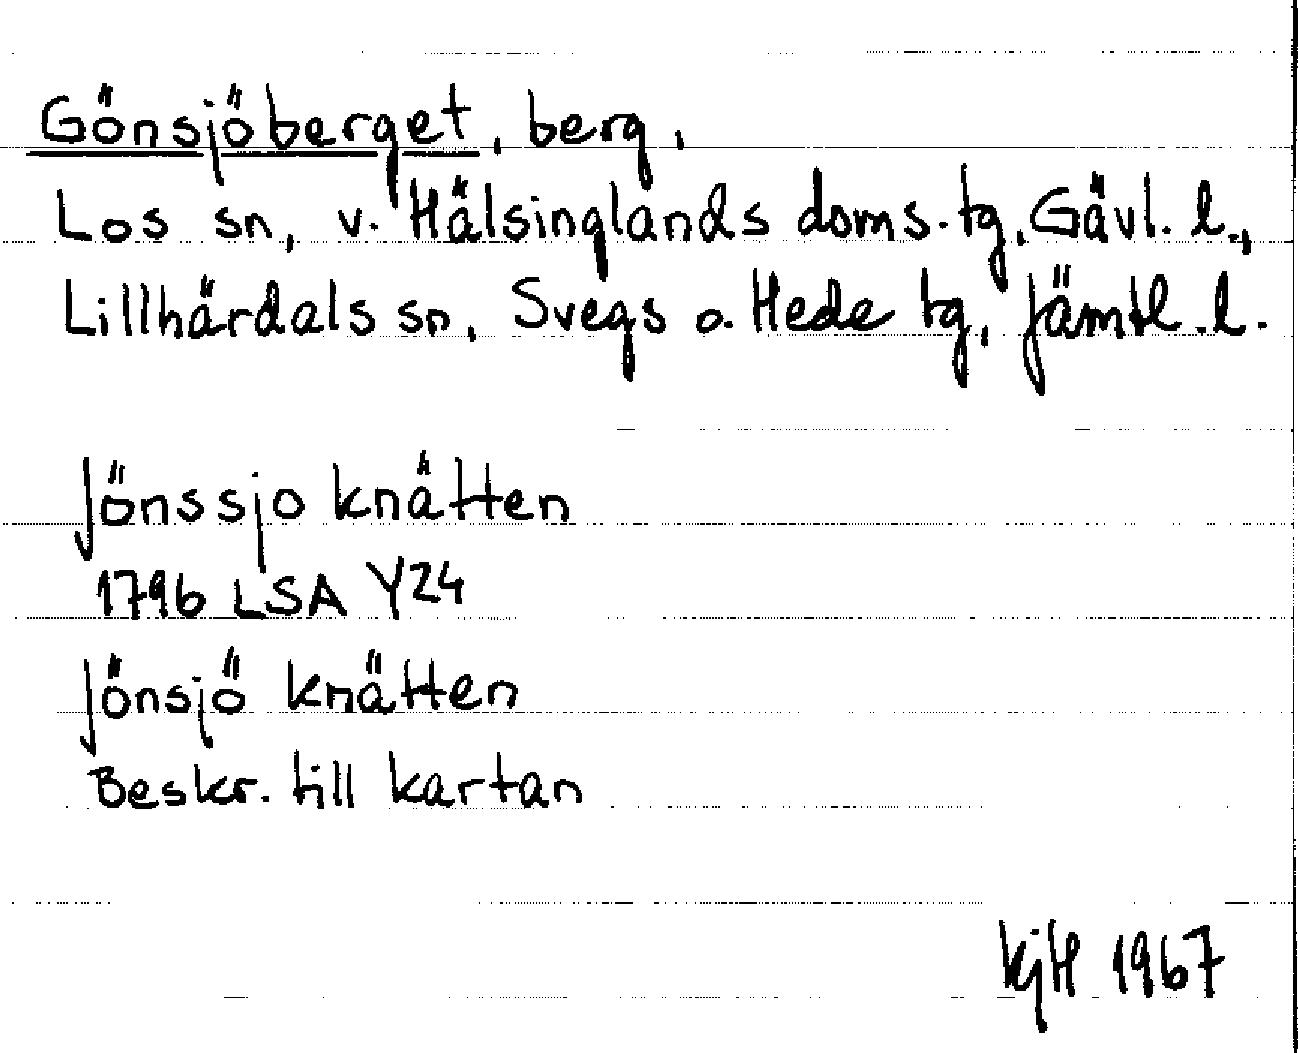 Gönsjöberget, berg,
Los sn, v. Hälsinglands doms. tg, Gävl. l.,
Lillhärdals sn, Svegs o. Hede tg, Jämtl. l.
Jönssjo knätten
1796 LSA Y24
Jönsjö knätten
Beskr. till kartan
KjH 1967